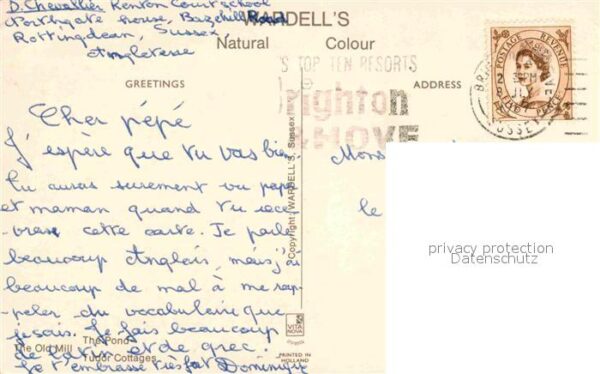 D. Chevallier Kenton Court school
Northgate house, Bazehill Road
Rottingdean, Sussex
Angleterre
WARDELL'S
Natural Colour
'S TOP TEN RESORTS
Brighton
& HOVE
POSTAGE REVENUE
GREETINGS
ADDRESS
Cher pépé
J'espère que tu vas bien
Tu auras surement vu papa
et maman quand tu rece
vras cette carte. Je parle
beaucoup Anglais, mais j'ai
beaucoup de mal à me rap
peler du vocabulaire que
je sais. Je fais beaucoup
de latin et de grec.
Je t'embrasse très fort Dominique
The Old Mill
The Pond
Tudor Cottages
Copyright: WARDELL'S, Sussex
VITA NOVA
PRINTED IN
HOLLAND
Mons
le
privacy protection
Datenschutz